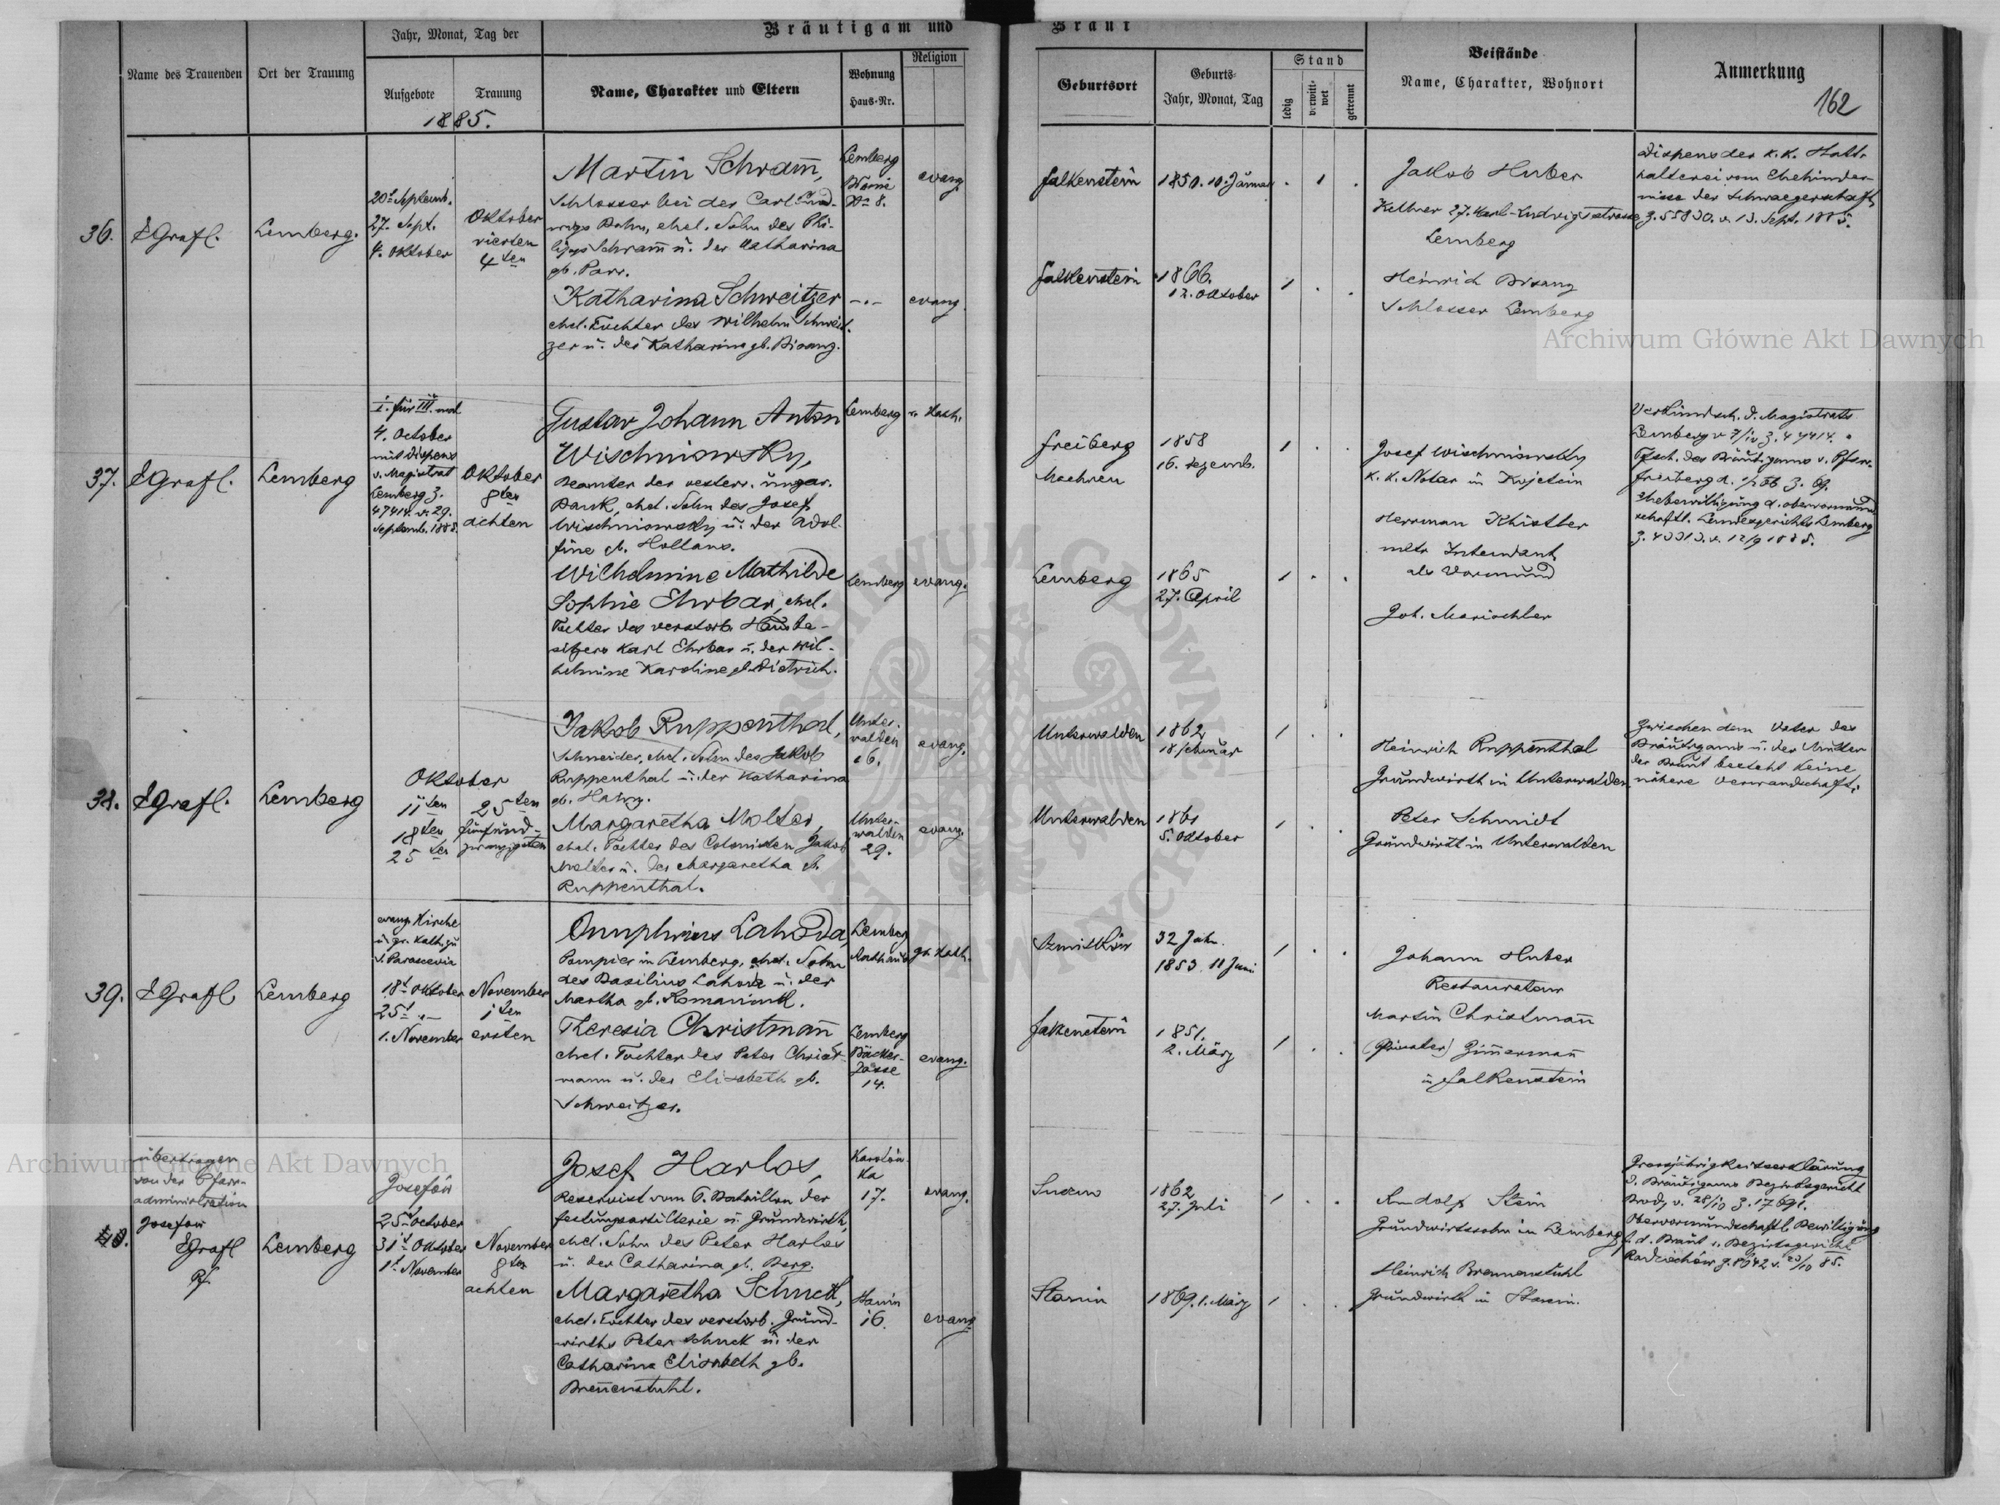 Bräutigam und Braut
Name des Trauenden
Ort der Trauung
Jahr, Monat, Tag der
Aufgebote
Trauung
1885.
Name, Charakter und Eltern
Wohnung
Haus-Nr.
Religion
Geburtsort
Geburts-
Jahr, Monat, Tag
Stand
ledig
verwitt-
wet
getrennt
Beistände
Name, Charakter, Wohnort
Anmerkung
162
36.
EGrafl.
Lemberg.
20t Septemb.
27. Sept.
4. Oktober
Oktober
vierten
4ten
Martin Schram̅,
Schlosser bei der Carl Lud-
wigs Bahn, ehel. Sohn des Phi-
lipps Schram̅ u. der Katharina
gb. Parr.
Lemberg
No 8.
evang.
Falkenstein
1850. 10. Jänner
Jakob Huber
Kellner 27. Karl-Ludwigstrasse
Lemberg
Dispens der k. k. Statt-
halterei vom Ehehinder-
nisse der Schwaegerschaft
Z. 55830. v. 13. Sept. 1885.
Katharina Schweitzer
ehel. Tochter des Wilhelm Schweit-
zer u. der Katharina gb. Bisanz.
evang.
Falkenstein
1866.
12. Oktober
Heinrich Bisanz
Schlosser Lemberg
37.
EGrafl.
Lemberg
I. für III. mal
4. October
mit Dispens
v. Magistrat
Lemberg Z.
47414. v. 29.
Septemb. 1885.
Oktober
8ten
achten
Gustav Johann Anton
Wischniowsky,
Beamter der oesterr. ungar.
Bank, ehel. Sohn des Josef
Wischniowsky u. der Adol-
fine gb. Hollans.
Lemberg
r. Kath.
Freiberg
Maehren
1858
16. Dezemb.
Josef Wischniowsky
k. k. Notar in Kojetein
Herrman Khistler
Intendant
als Vormund
Joh. Marischler
Verkündsch. d. Magistrats
Wilhelmine Mathilde
Sophie Ehrbar, ehel.
Tochter des verstorb. Hausbe-
sitzers Karl Ehrbar u. der Wil-
helmine Karoline gb. Dietrich.
Lemberg
evang.
Lemberg
1865
27. April
38.
EGrafl.
Lemberg
Oktober
11ten
18ten
25ten
25ten
fünfund-
zwanzigsten
Jakob Ruppenthal,
Schneider, ehel. Sohn des Jakob
Ruppenthal u. der Katharina
gb. Hainz.
Unter-
walden
evang.
Unterwalden
1862
18 Februar
Heinrich Ruppenthal
Grundwirth in Unterwalden
Zwischen dem Vater des
Bräutigams u. der Mutter
der Braut besteht keine
nähere Verwandschaft.
Margaretha Molter,
ehel. Tochter des Colonisten Jakob
Molter u. der Margaretha gb.
Ruppenthal.
Unter-
walden
29.
evang.
Unterwalden
1861
5. Oktober
Peter Schmidt
Grundwirth in Unterwalden
39.
EGrafl
Lemberg
evang. Kirche
u. gr. kath. zu
S. Parascevia
18t Oktober
25t "
1. November
November
1ten
ersten
Onuphrius Lahoda,
Pompier in Lemberg, ehel. Sohn
des Basilius Lahoda u. der
Martha gb. Romaniuk.
Lemberg
Rathhaus
gr. Kath.
32 Jahr.
1853 11 Juni
Johann Huber
Restaurateur
Theresia Christman̅
ehel. Tochter des Peter Christ-
mann u. der Elisabeth gb.
Schweitzer.
Lemberg
Bäcker-
Gasse
14.
evang.
Falkenstein
1851.
2. März
Martin Christman̅
(Privater) Zim̅erman̅
in Falkenstein
übertragen
von der Pfarr-
administration
Josefow
40.
EGrafl
Pf.
Lemberg
Josefów
25t October
31t Oktober
1t November
November
8ten
achten
Josef Harlos,
Reservist vom 6. Bataillon der
Festungsartillerie u. Grundwirth,
ehel. Sohn des Peter Harlos
u. der Catharina gb. Berg.
17.
evang.
1862
27. Juli
Rudolf Stein
Grundwirtssohn in Lemberg
Grossjährigkeitserklärung
d. Bräutigams Bezirksgericht
Brody v. 28/10 Z. 17691.
Obervormundschaftl. Bewilligung
f. d. Braut v. Bezirksgericht
Radziechów Z. 8642 v. 20/10 85.
Margaretha Schuck,
ehel. Tochter des verstorb. Grund-
wirths Peter Schuck u. der
Catharina Elisabeth gb.
Bren̅enstuhl.
Stanin
16.
evang.
Stanin
1869. 1. März
Heinrich Brennenstuhl
Grundwirth in Stanin.
Archiwum Główne Akt Dawnych
Archiwum Główne Akt Dawnych
ARCHIWUM GŁÓWNE AKT DAWNYCH